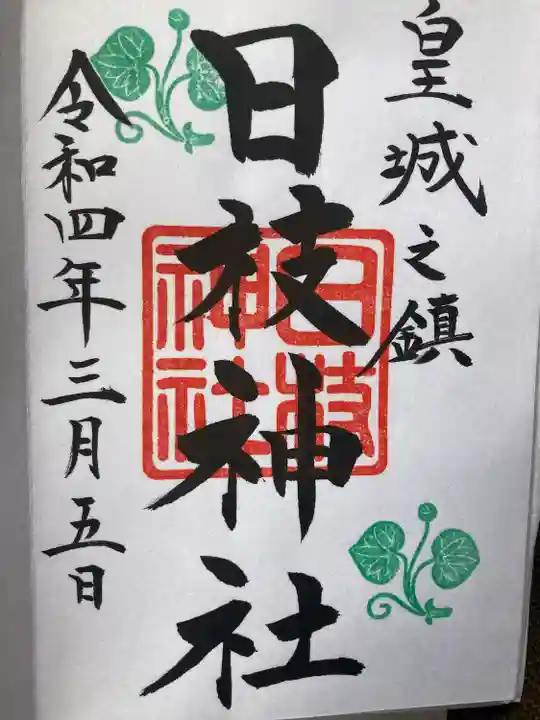 皇城之鎮
日枝神社
日枝神社
令和四年三月五日